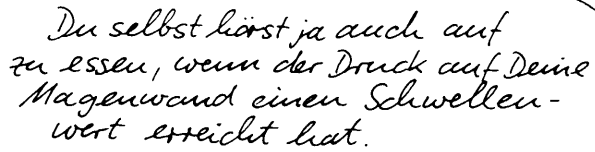 Du selbst hörst ja auch auf
zu essen, wenn der Druck auf Deine
Magenwand einen Schwellen-
wert erreicht hat.